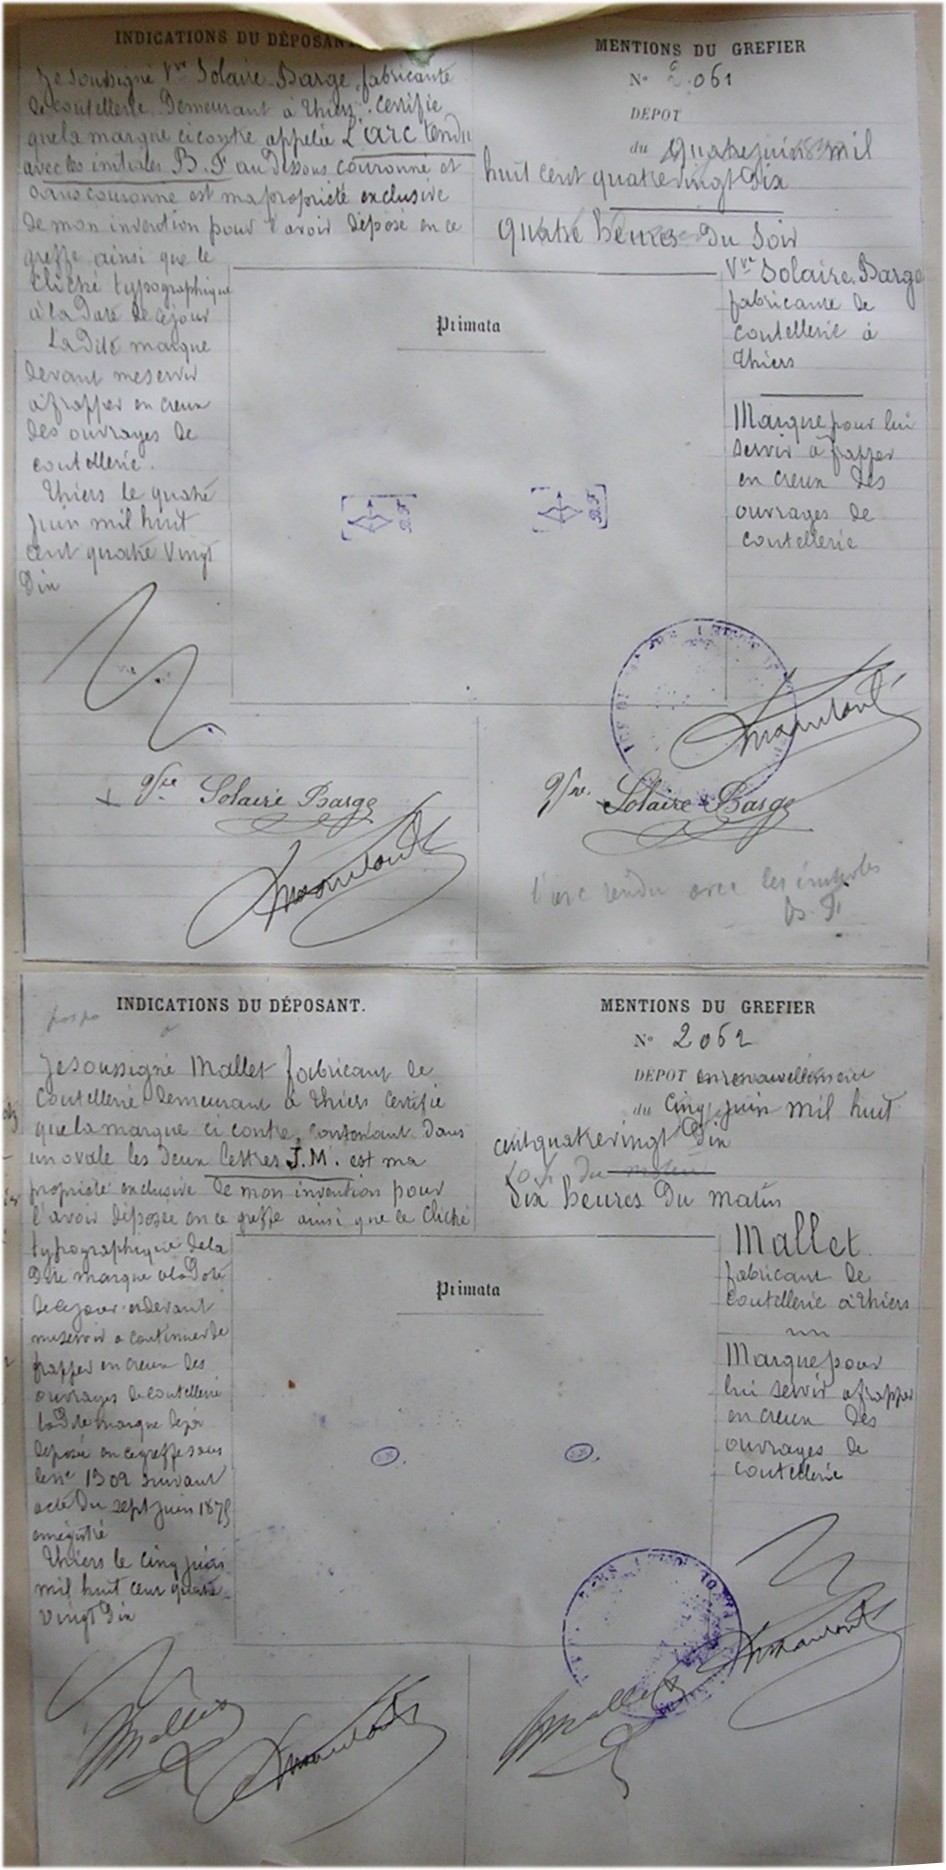 INDICATIONS DU DÉPOSANT.
Je soussigné Vve Solaire-Barge, fabricante
de coutellerie, Demeurant à Thiers, certifie
que la marque ci contre appelée L'arc tendu
avec les initiales B. F au dessous couronné et
sans couronne est ma propriété exclusive
de mon invention pour l'avoir déposé en ce
greffe ainsi que le
cliché typographique
à la Date de ce jour
La Dite marque
devant me servir
à frapper en creux
des ouvrages de
coutellerie.
Thiers le quatre
juin mil huit
cent quatre vingt
Dix
Vve Solaire Barge
MENTIONS DU GREFIER
No 2.061
DÉPOT
du quatre juin mil
huit cent quatre vingt Dix
quatre heures Du Soir
Primata
B.F
B.F
Vve Solaire-Barge
fabricante de
coutellerie à
Thiers
Marque pour lui
servir à frapper
en creux des
ouvrages de
coutellerie
Vve Solaire Barge
l'arc tendu avec les initiales
B. F.
INDICATIONS DU DÉPOSANT.
Je soussigné Mallet fabricant de
coutellerie Demeurant à Thiers certifie
que la marque ci contre, contenant Dans
un ovale les Deux lettres J.M. est ma
propriété exclusive de mon invention pour
l'avoir déposée en ce greffe ainsi que le cliché
typographique de la
Dite marque à la Date
de ce jour devant
me servir a continuer de
frapper en creux des
ouvrages de coutellerie
la Dite marque déjà
déposée en ce greffe sous
le no 1302 suivant
acte Du sept juin 1875
enregistré
Thiers le cinq juin
mil huit cent quatre
vingt Dix
Mallet
MENTIONS DU GREFIER
No 2062
DÉPOT en renouvellement
du cinq juin mil huit
cent quatre vingt Dix
Dix heures Du matin
Primata
Mallet
fabricant de
coutellerie à Thiers
Marque pour
lui servir a frapper
en creux des
ouvrages de
coutellerie
Mallet